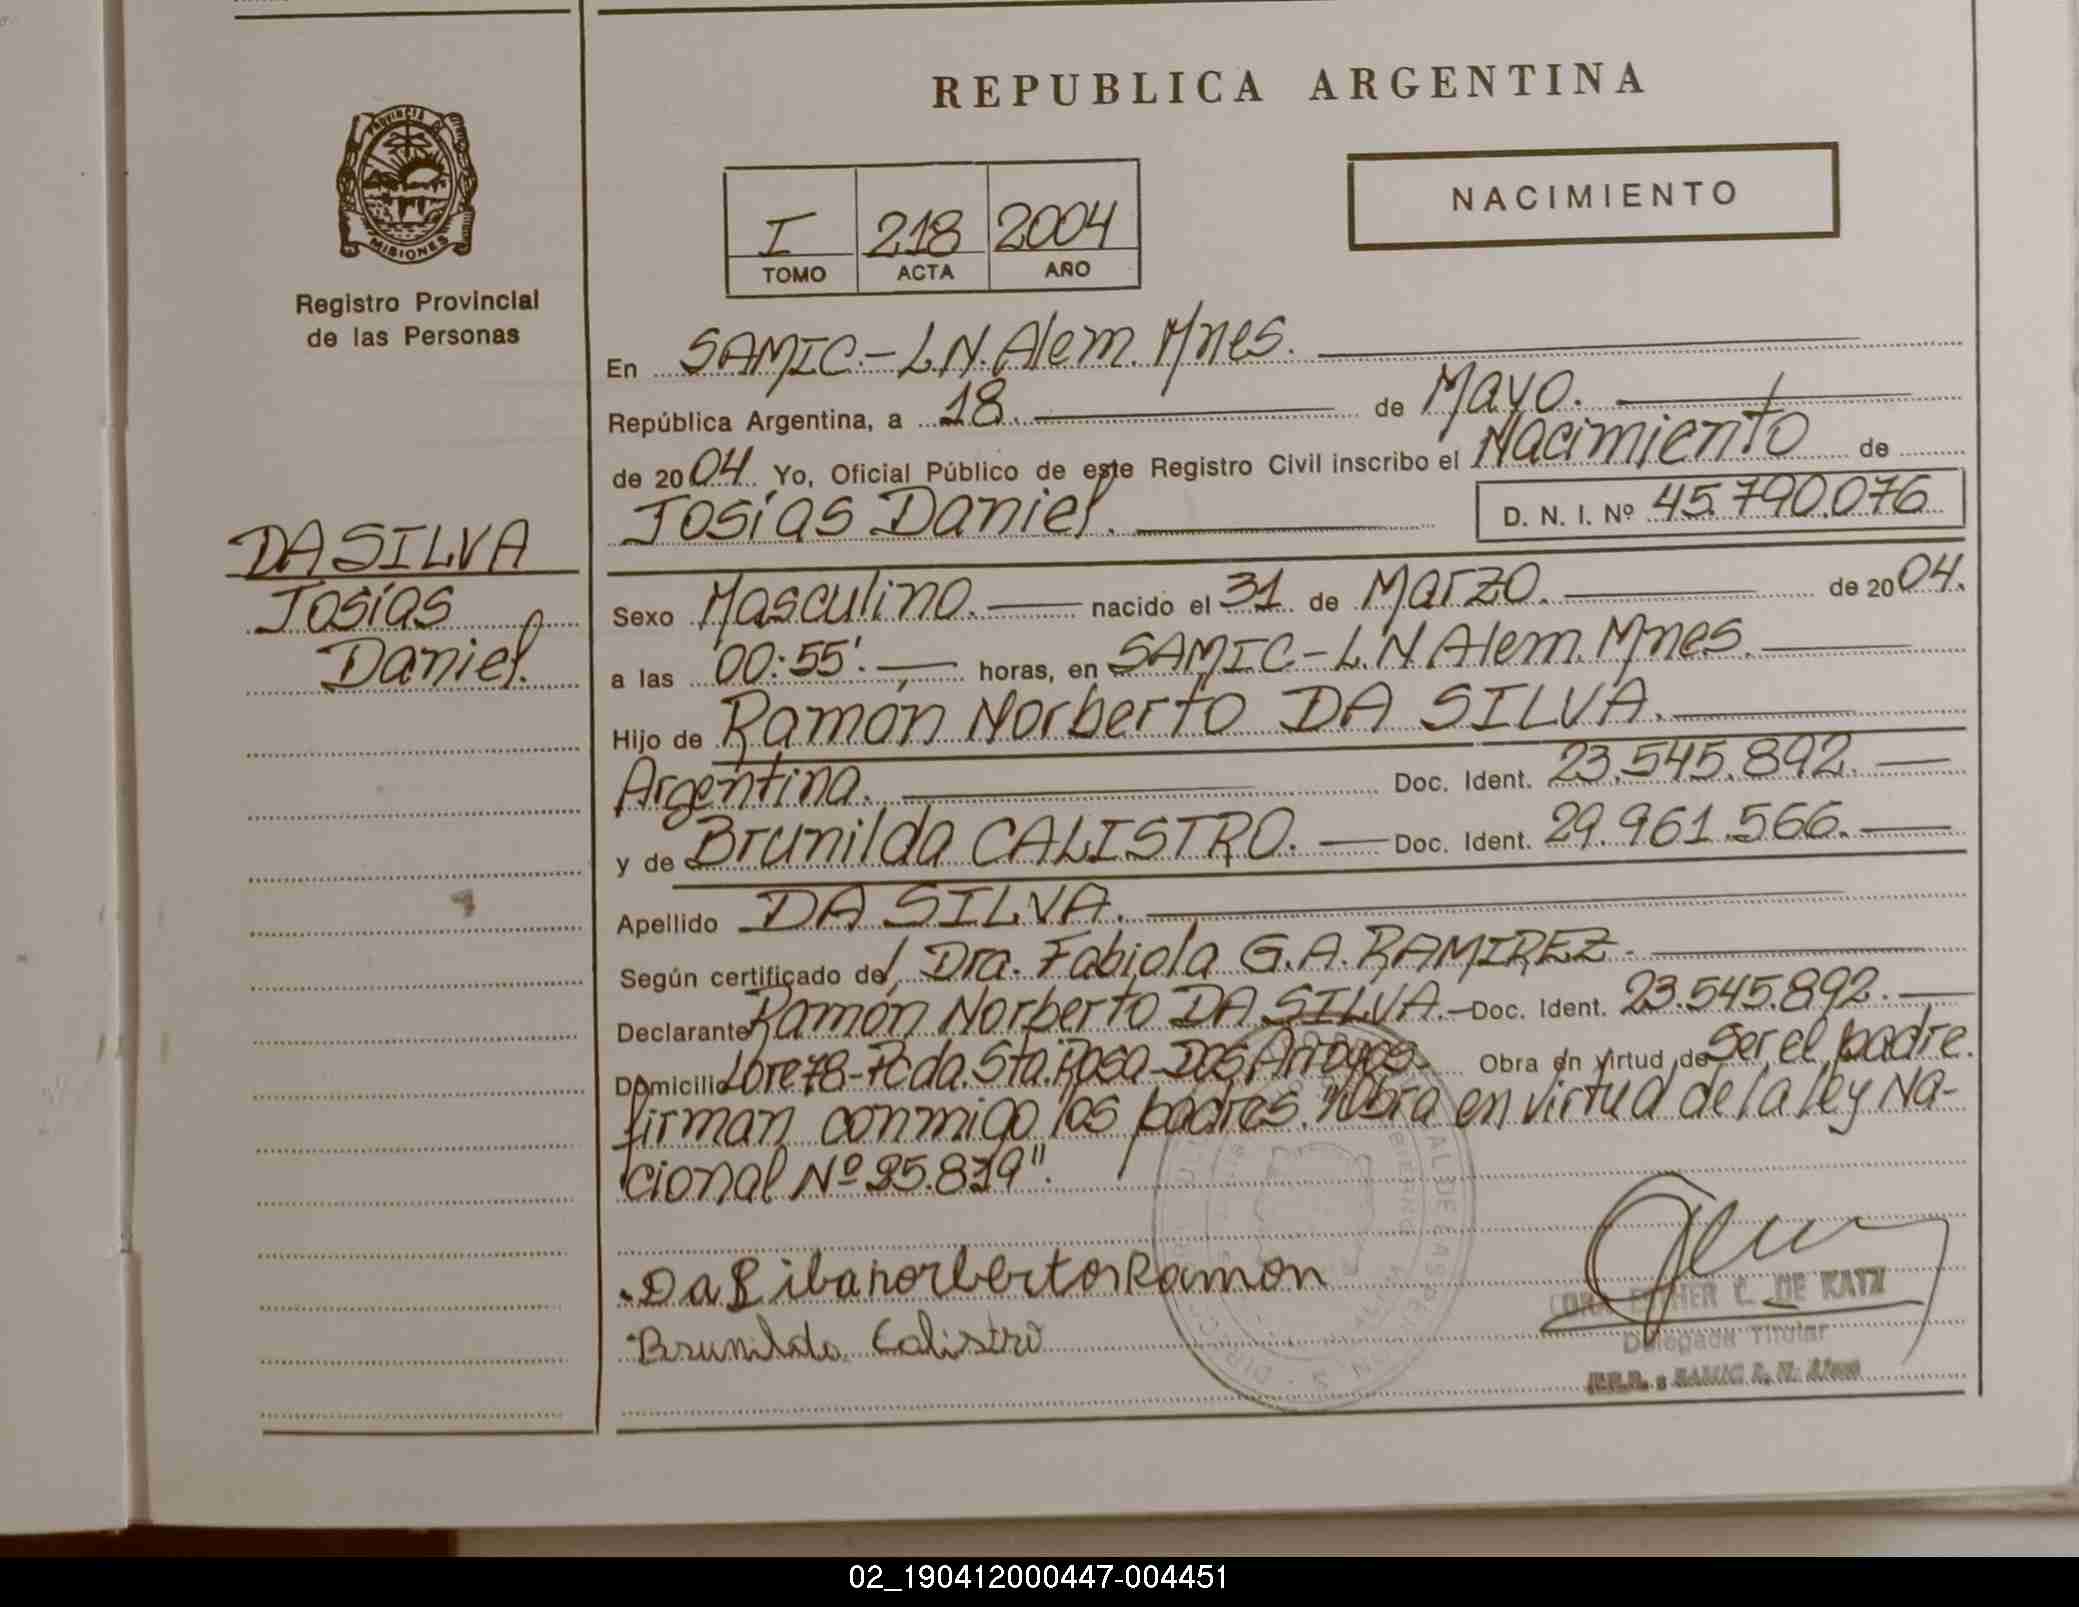 REPUBLICA ARGENTINA
PROVINCIA DE
MISIONES
Registro Provincial
de las Personas
NACIMIENTO
I 218 2004
TOMO ACTA AÑO
En SAMIC.- L.N. Alem. Mnes.
República Argentina, a 18. de Mayo.
de 2004. Yo, Oficial Público de este Registro Civil inscribo el Nacimiento de
Josías Daniel. D. N. I. Nº 45.790.076
DA SILVA
Josías
Daniel.
Sexo Masculino. nacido el 31 de Marzo. de 2004.
a las 00:55'. horas, en SAMIC- L.N Alem. Mnes.
Hijo de Ramón Norberto DA SILVA.
Argentina. Doc. Ident. 23.545.892.
y de Brunilda CALISTRO. Doc. Ident. 29.961.566.
Apellido DA SILVA.
Según certificado de/ Dra. Fabiola G.A. RAMIREZ.
Declarante Ramón Norberto DA SILVA.- Doc. Ident. 23.545.892.
Domicilio Lote 78- Pcda. Sta. Rosa- Dos Arroyos. Obra en virtud de Ser el padre.
firman conmigo los padres. "Obra en virtud de la ley Na-
cional Nº 25.819".
Da Silba norberto Ramon
Brunilda Calistro
DE KATZ
Delegada Titular
02_190412000447-004451